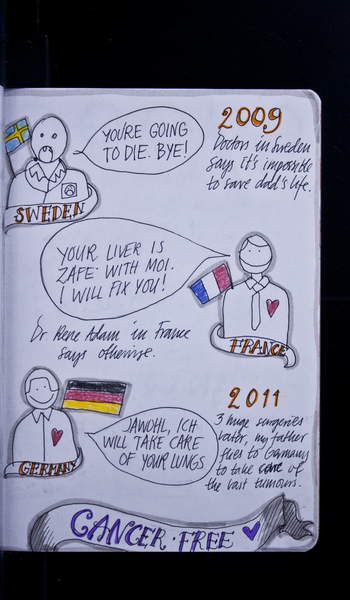 2009
YOU'RE GOING
TO DIE. BYE!
Doctors in Sweden
says it's impossible
to save dad's life.
SWEDEN
YOUR LIVER IS
ZAFE WITH MOI.
I WILL FIX YOU!
Dr Rene Adam in France
says otherwise.
FRANCE
2011
JAWOHL, ICH
WILL TAKE CARE
OF YOUR LUNGS
3 huge surgeries
later, my father
flies to Germany
to take care of
the last tumours.
GERMANY
CANCER · FREE